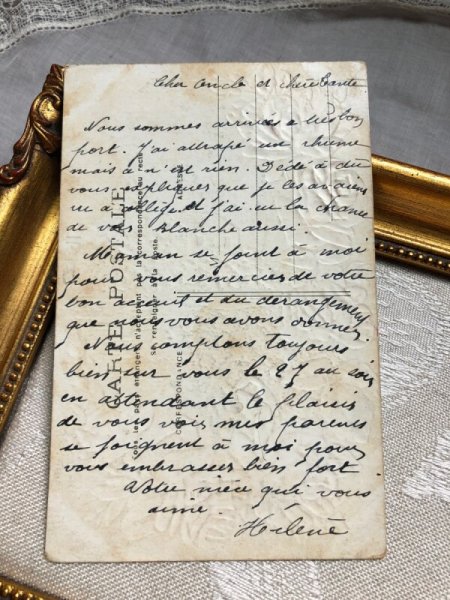 Cher oncle et chère Tante
Nous sommes arrivées a bon
port. J'ai attrapé un rhume
mais ce n'est rien. Dédé a dû
vous expliquer que je les avaient
vu a et j'ai eu la chance
de voir Blanche aussi.
Maman se joint à moi
pour vous remercier de votre
bon accueil et du dérangement
que nous vous avons donner.
Nous comptons toujours
bien sur vous le 27 au soir
en attendant le plaisir
de vous voir mes parents
se joignent à moi pour
vous embrasser bien fort
Votre nièce qui vous
aime.
Hélène
CARTE POSTALE
Tous les pays étrangers n'acceptent pas la correspondance au recto
Se renseigner à la poste
CORRESPONDANCE
ADRESSE